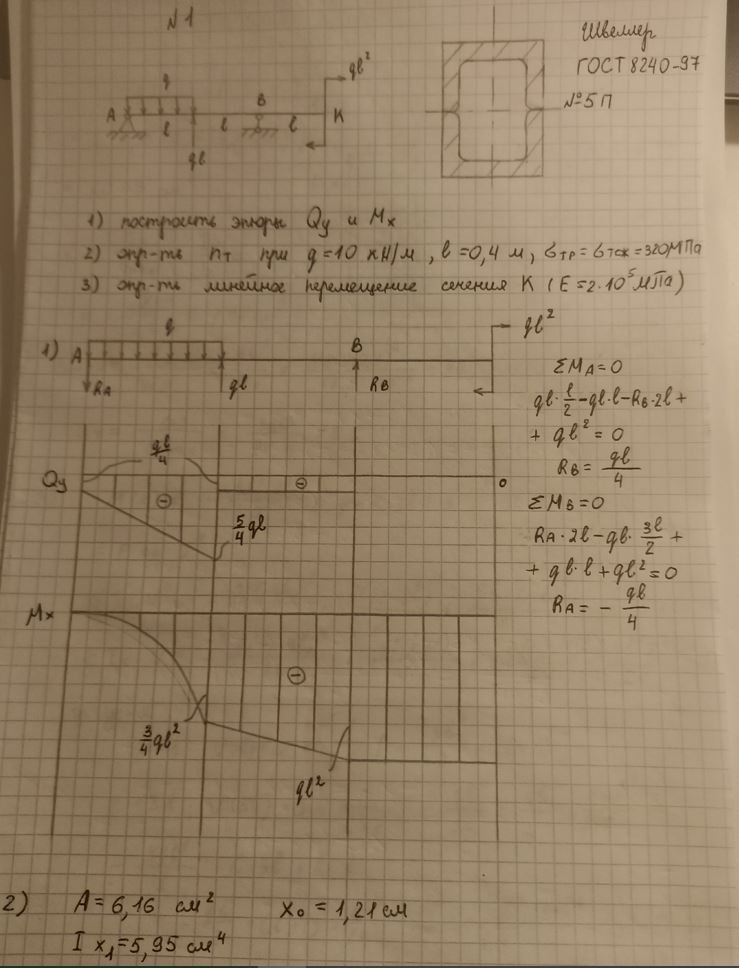 №1
Швеллер
ГОСТ 8240-97
№5П
q
ql²
A
B
K
l
l
l
ql
1) построить эпюры Qy и Mx
2) опр-ть nт при q=10 кН/м, l=0,4 м, σтр=σтсж=320МПа
3) опр-ть линейное перемещение сечения K (E=2·10⁵МПа)
1)
q
ql²
A
B
RA
ql
RB
ΣMA=0
ql·l/2-ql·l-RB·2l+
+ql²=0
RB=ql/4
ΣMB=0
RA·2l-ql·3l/2+
+ql·l+ql²=0
RA=-ql/4
Qy
ql/4
⊖
⊖
0
5/4ql
Mx
⊖
3/4ql²
ql²
2) A=6,16 см² x₀=1,21см
I x₁=5,95 см⁴